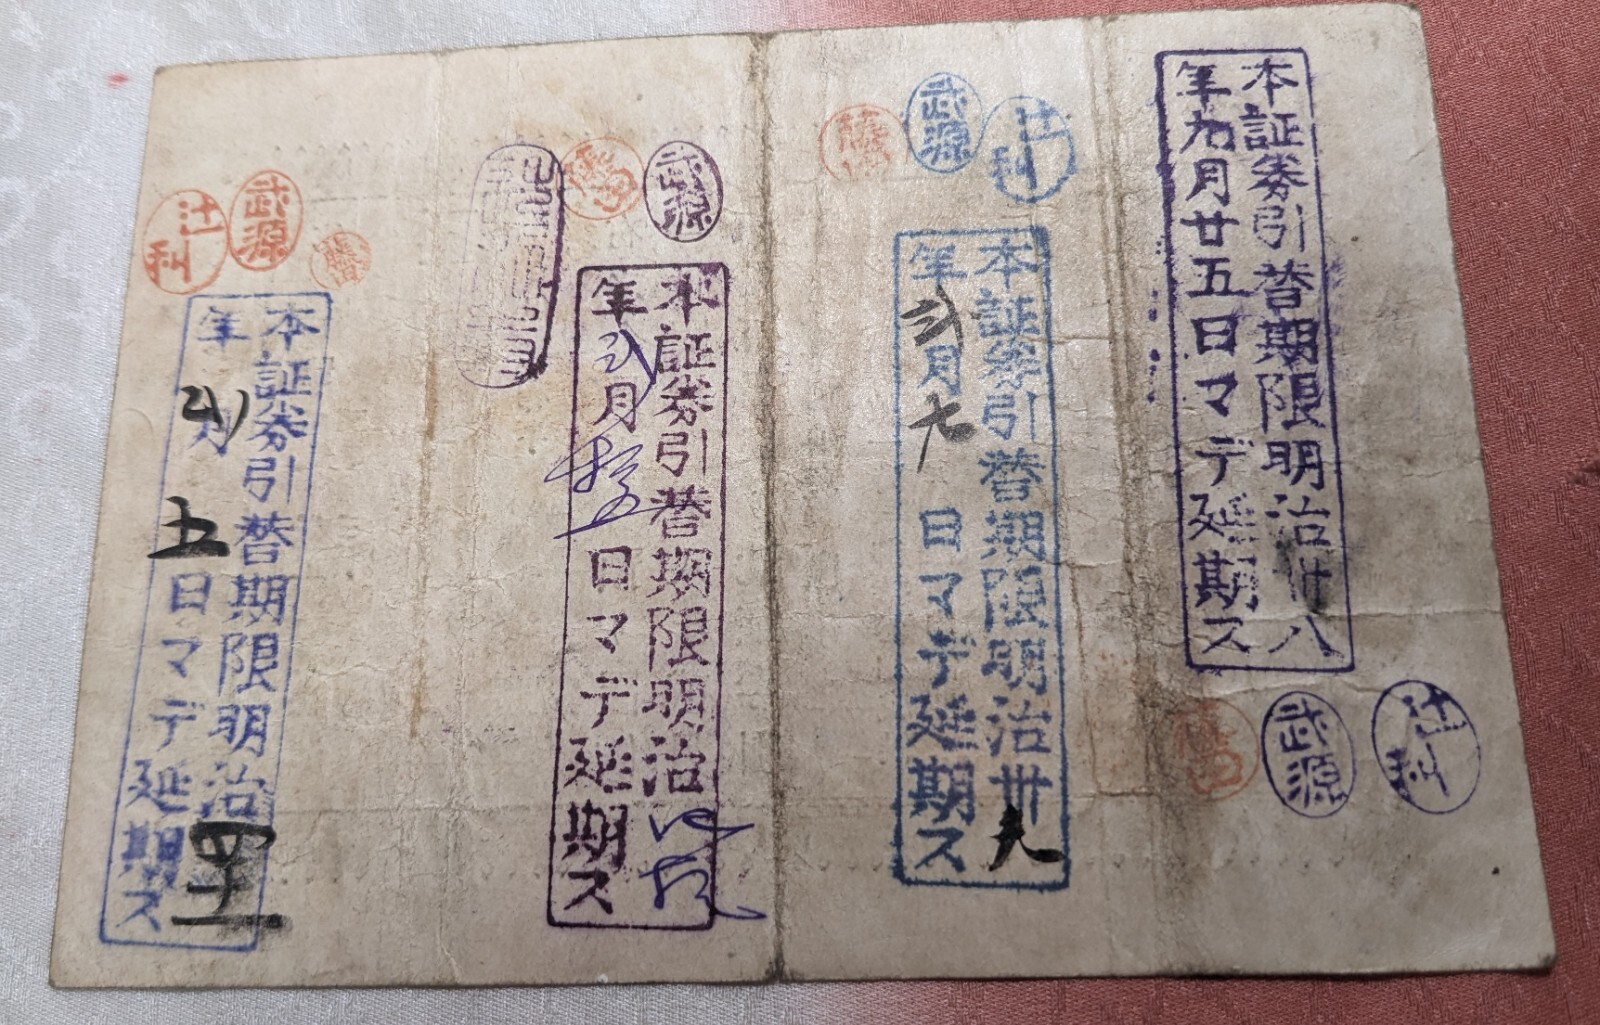 本証券引替期限明治卅八
年九月廿五日マデ延期ス
辻科
武源
辻科
武源
本証券引替期限明治卅
年弍月七日マデ延期ス
武源
本証券引替期限明治四拾
年弍月拾五日マデ延期ス
武源
辻科
本証券引替期限明治四十一
年弍月五日マデ延期ス